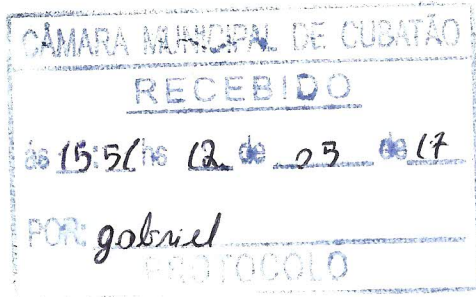 CÂMARA MUNICIPAL DE CUBATÃO
RECEBIDO
às 15:51 hs 12 de 05 de 17
POR: gabriel
PROTOCOLO